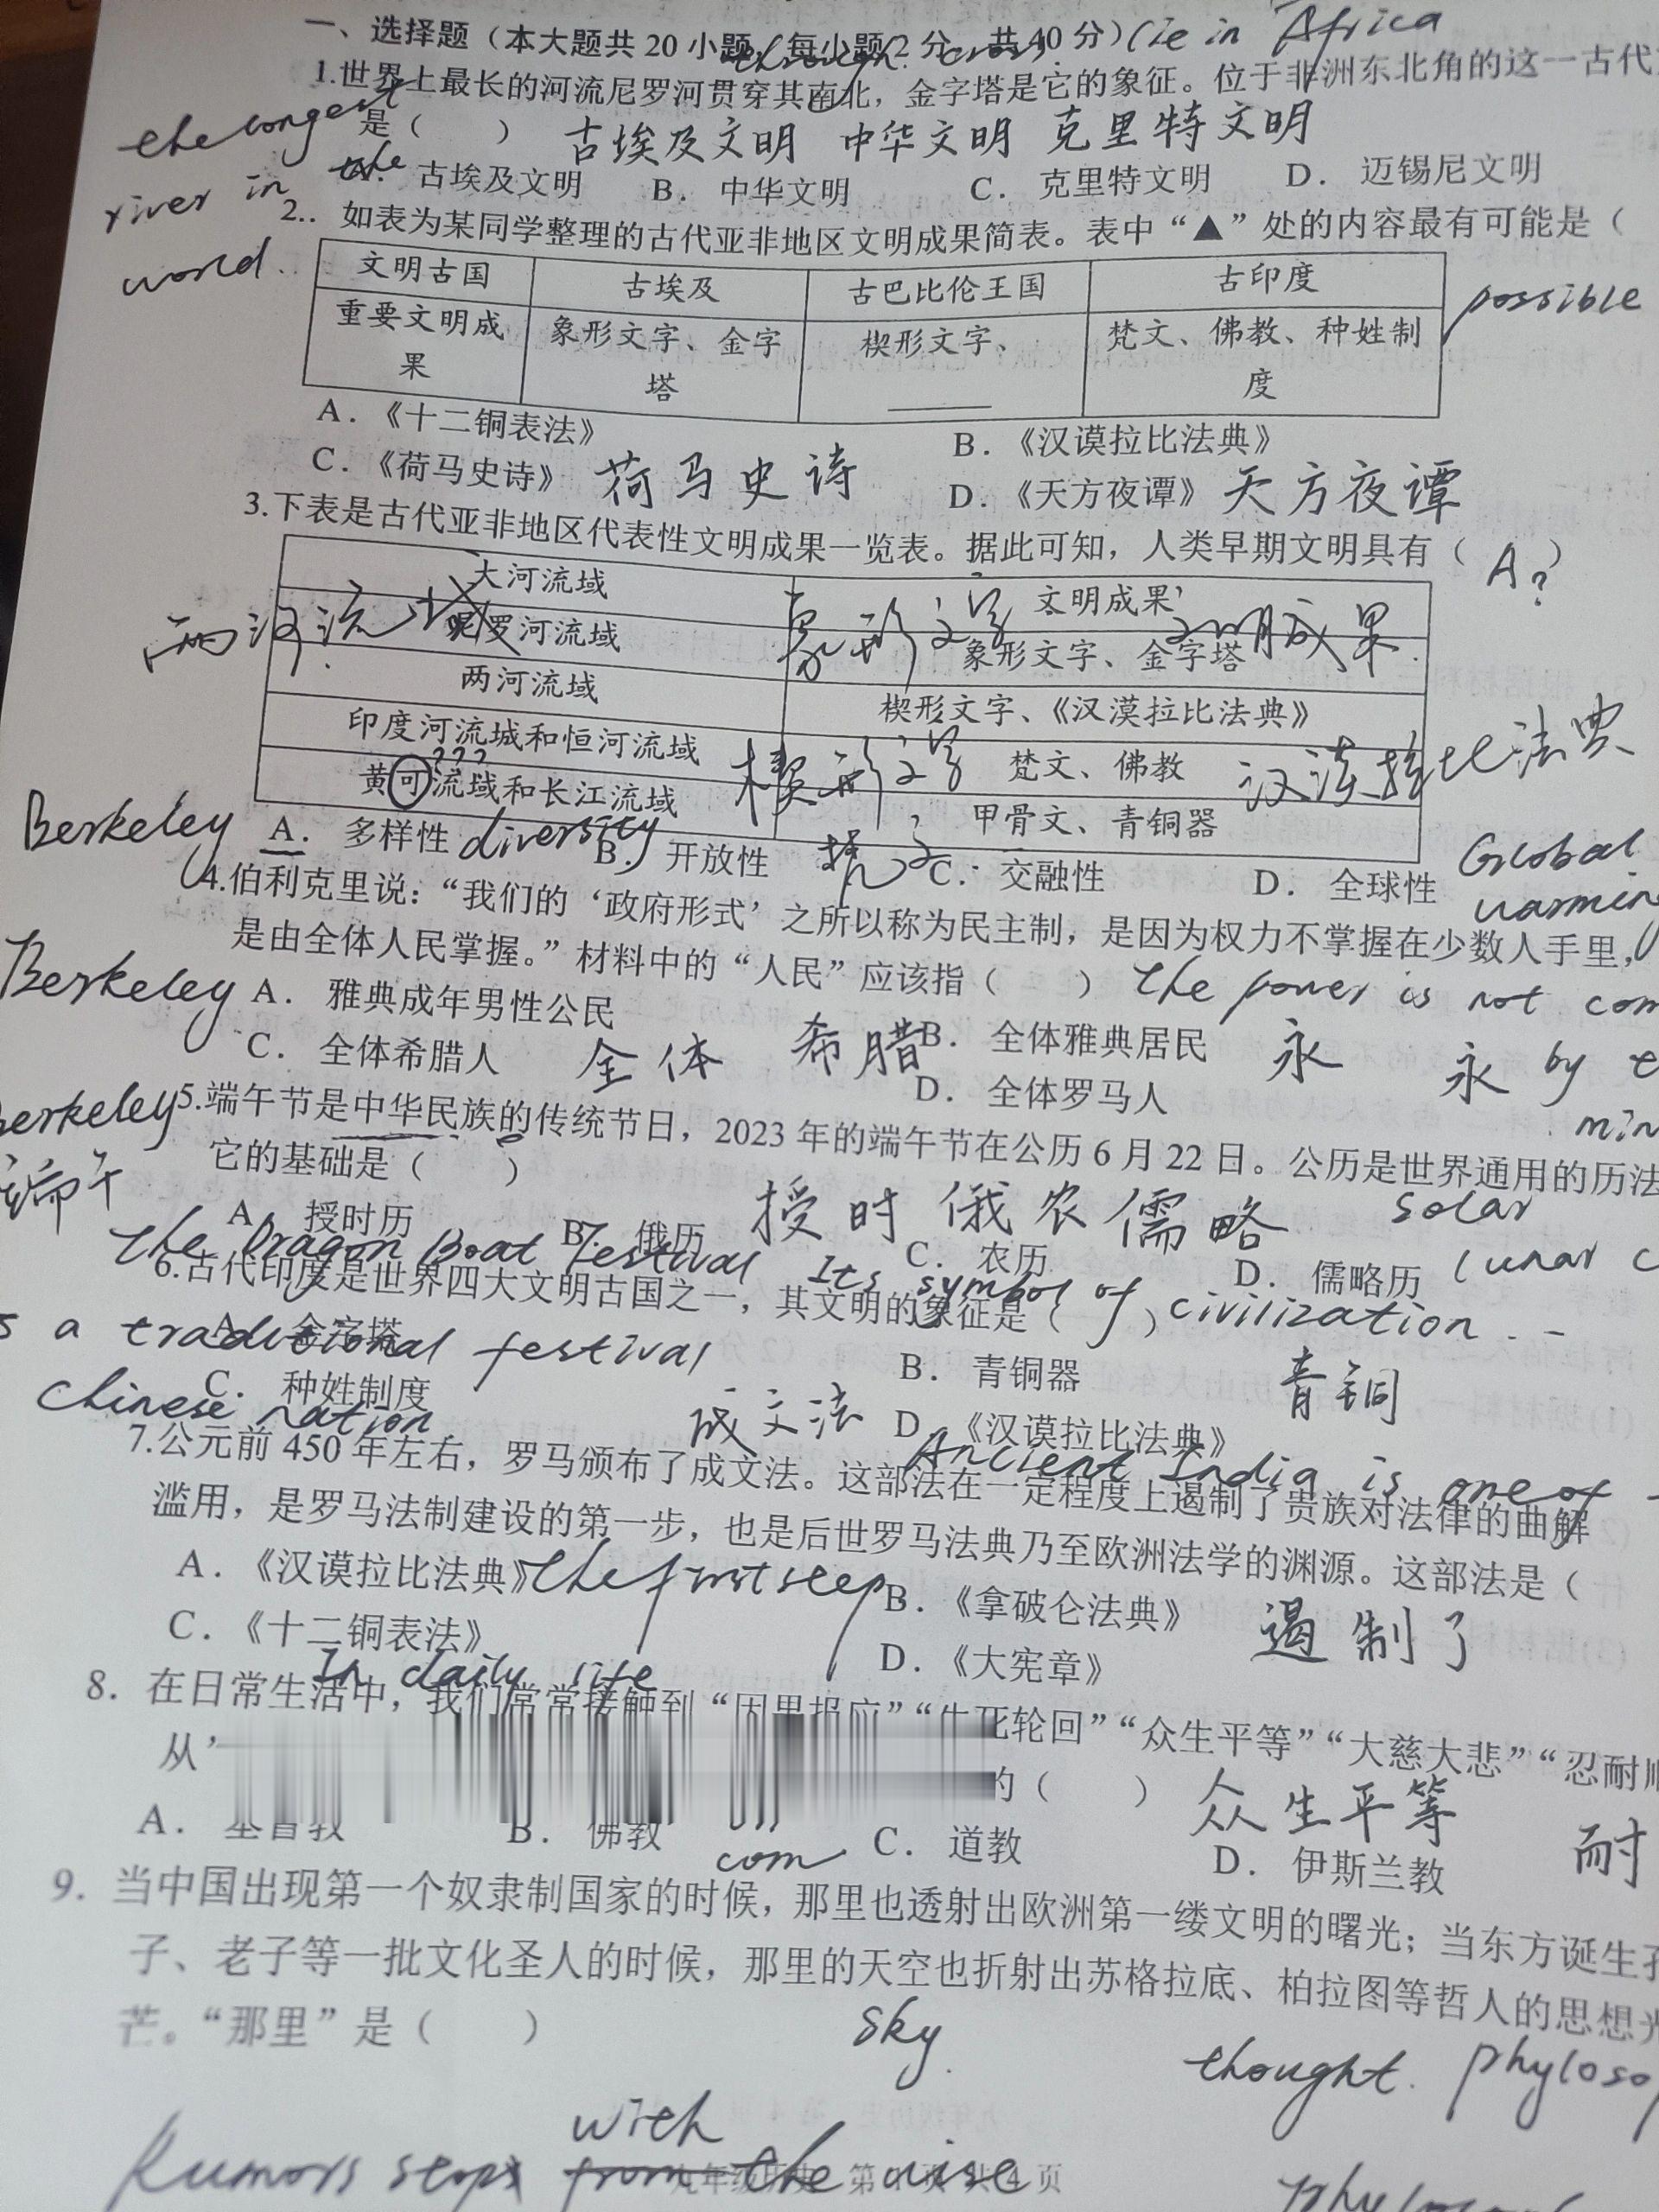 一、选择题（本大题共 20 小题，每小题 2 分，共 40 分）lie in Africa
through cross
1.世界上最长的河流尼罗河贯穿其南北，金字塔是它的象征。位于非洲东北角的这一古代
the longest
是（ ） 古埃及文明 中华文明 克里特文明
the
古埃及文明 B． 中华文明 C． 克里特文明 D． 迈锡尼文明
river in
2.. 如表为某同学整理的古代亚非地区文明成果简表。表中“▲”处的内容最有可能是（
world.
文明古国 古埃及 古巴比伦王国 古印度
possible
重要文明成果 象形文字、金字塔 楔形文字、 梵文、佛教、种姓制度
A．《十二铜表法》 B．《汉谟拉比法典》
C．《荷马史诗》 荷马史诗 D．《天方夜谭》 天方夜谭
3.下表是古代亚非地区代表性文明成果一览表。据此可知，人类早期文明具有（ A? ）
大河流域 文明成果
两河流域 象形文字 文明成果
罗河流域 象形文字、金字塔
两河流域 楔形文字、《汉漠拉比法典》
印度河流城和恒河流域 梵文、佛教
楔形文字 法典
???
黄可流域和长江流域 甲骨文、青铜器
Berkeley A． 多样性 diversity B． 开放性 C． 交融性 D． 全球性 Global
4.伯利克里说：“我们的‘政府形式’之所以称为民主制，是因为权力不掌握在少数人手里，
是由全体人民掌握。”材料中的“人民”应该指（ ） the power is not com
Berkeley A． 雅典成年男性公民 B． 全体雅典居民 永 永 by
C． 全体希腊人 全体 希腊 D． 全体罗马人
Berkeley 5.端午节是中华民族的传统节日，2023 年的端午节在公历 6 月 22 日。公历是世界通用的历法
min
它的基础是（ ）
端午
授时 俄农儒略 solar
A． 授时历 B． 俄历 C． 农历 D． 儒略历 lunar c
the Dragon Boat Festival Its symbol of civilization
6.古代印度是世界四大文明古国之一，其文明的象征是（ ）
s a traditional festival
A． 金字塔 B． 青铜器 青铜
Chinese nation
C． 种姓制度 成文法 D．《汉谟拉比法典》
Ancient India is one of
7.公元前 450 年左右，罗马颁布了成文法。这部法在一定程度上遏制了贵族对法律的曲解
滥用，是罗马法制建设的第一步，也是后世罗马法典乃至欧洲法学的渊源。这部法是（
A．《汉谟拉比法典》the first step B．《拿破仑法典》
C．《十二铜表法》 D．《大宪章》 遏制了
In daily life
8. 在日常生活中，我们常常接触到“因果报应”“生死轮回”“众生平等”“大慈大悲”“忍耐顺
从
的（ ） 众生平等 耐
A． 基督教 B． 佛教 C． 道教 D． 伊斯兰教
com
9. 当中国出现第一个奴隶制国家的时候，那里也透射出欧洲第一缕文明的曙光；当东方诞生孔
子、老子等一批文化圣人的时候，那里的天空也折射出苏格拉底、柏拉图等哲人的思想光
芒。“那里”是（ ）
sky.
thought. phyloso
with
Rumors stops from the wise
九年级历史 第 1 页 共 4 页